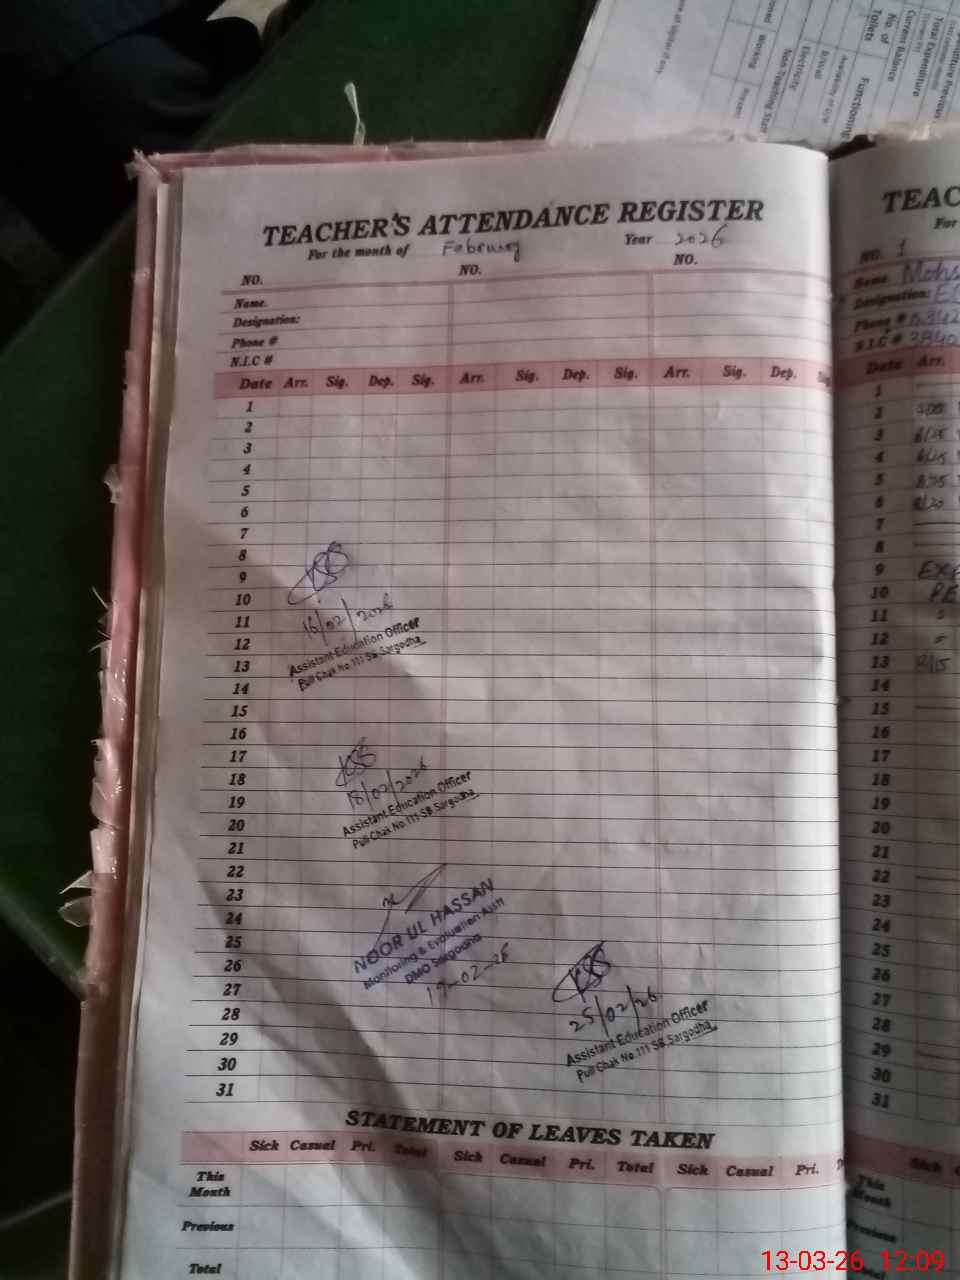 TEACHER'S ATTENDANCE REGISTER
For the month of February Year 2026
NO. NO. NO.
Name.
Designation:
Phone #
N.I.C #
Date Arr. Sig. Dep. Sig. Arr. Sig. Dep. Sig. Arr. Sig. Dep.
1
2
3
4
5
6
7
8
9
10
11
12
13
14
15
16
17
18
19
20
21
22
23
24
25
26
27
28
29
30
31
16/02/2026
Assistant Education Officer
Pull Chak No.111 SB Sargodha
18/02/2026
Assistant Education Officer
Pull Chak No.111 SB Sargodha
NOOR UL HASSAN
Monitoring & Evaluation Asstt
DMO Sargodha
25/02/26
Assistant Education Officer
Pull Chak No.111 SB Sargodha
STATEMENT OF LEAVES TAKEN
Sick Casual Pri. Total Sick Casual Pri. Total Sick Casual Pri.
This Month
Previous
Total
TEAC
For
NO. 1
Name Mohs
Designation: EC
Phone # 0342
N.I.C # 3840
Date Arr.
1
2
3 8/25
4 8/15
5
6 8/20
7
8
9
10
11
12
13
14
15
16
17
18
19
20
21
22
23
24
25
26
27
28
29
30
31
Sick
This Month
Previous
Total
Total Expenditure
Current Balance
No. of Toilets
Functioning
Electricity
Non Teaching Staff
Working
Present
13-03-26 12:09